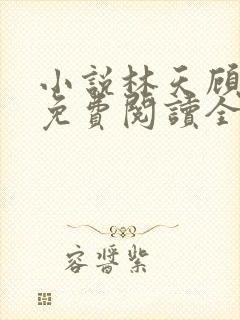 小說林天顧
免費閱讀全
容醬紫